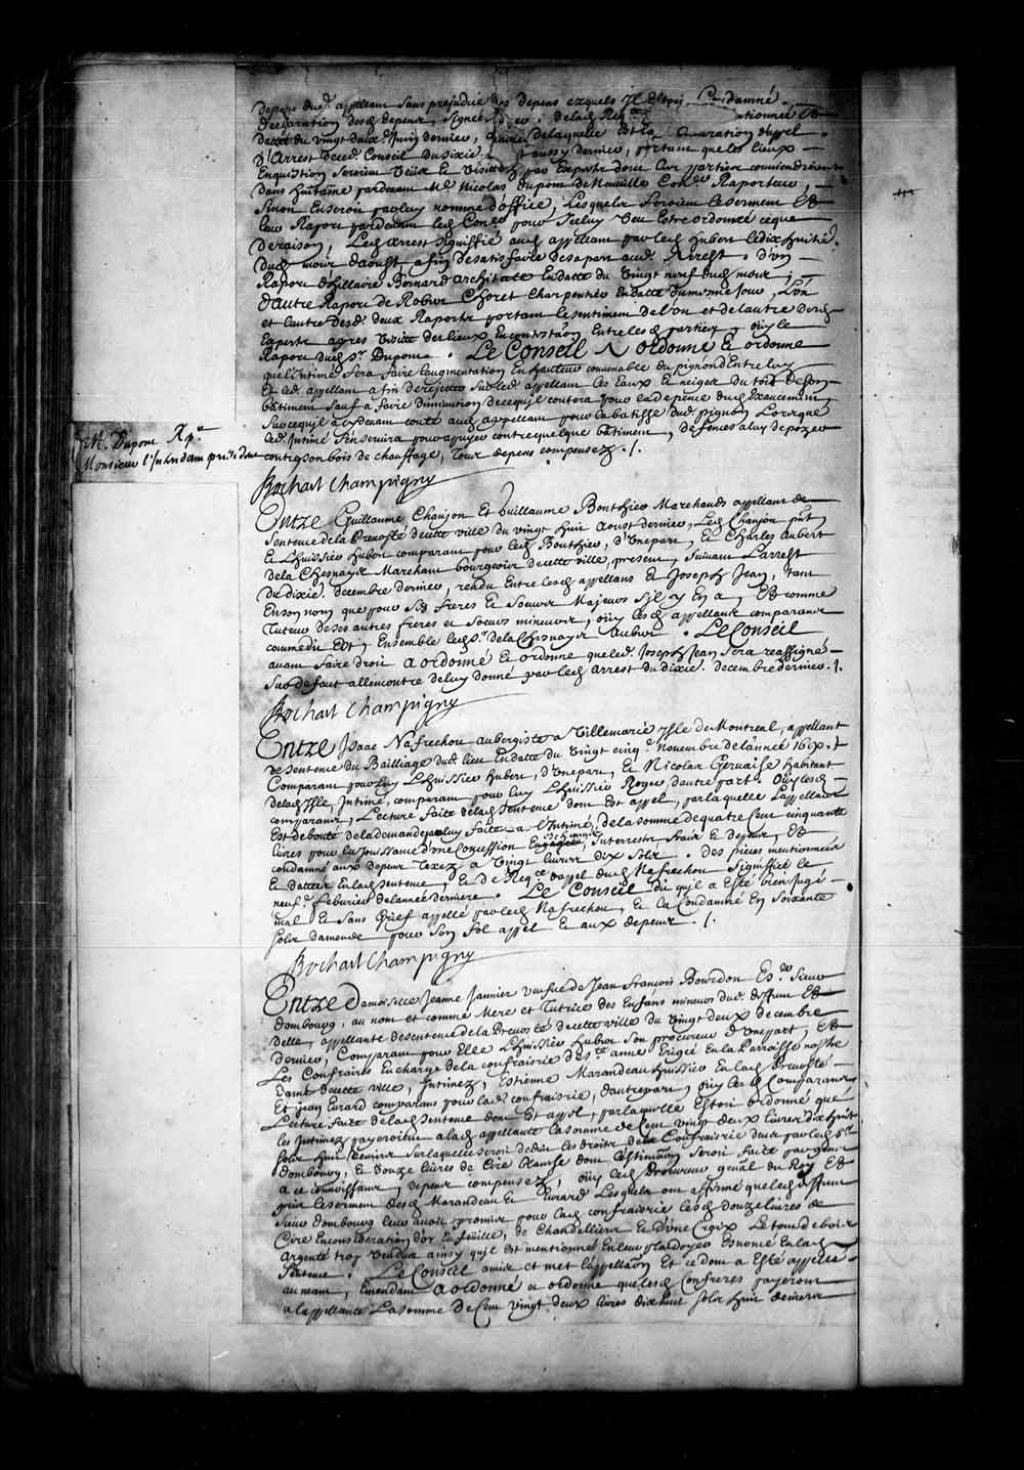 depens dud. appellant sans prejudice des depens esquels Il Condamné
declaration desd. depens, signée de la Req.te
dattée du vingt deux.e Juin dernier, de laquelle Est la declaration d'appel
d'Arrest dud. Conseil du dixie. aoust dernier, portant que les lieux
En question seroient Veus Et Visitez par Experts dont les parties conviendroient
dans huitaine pardevant M.e Nicolas dupont de Neuville Con.er Raporteur,
sinon En seroit par luy nommé d'office, Lesquels feroient le serment Et
leur Raport pardevant led. Con.er pour Iceluy Veu Estre ordonné ce que
de raison, Led. arrest signiffié aud. appellant par led. hubert le dix huitie.
dud. mois d'aoust afin de satisfaire de sa part aud. Arrest. d'un
Raport d'hillaire Bernard architecte En datte du Vingt neuf dud. mois
d'autre Raport de Robert Choret Charpentier En datte du mesme jour, L'un
et l'autre desd. deux Raports portant le sentiment de l'un et de l'autre desd.
Experts apres Visitte des lieux En contestaon Entre lesd. parties, ouy le
Raport dud. S.r Dupont. Le Conseil A ordonné Et ordonne
que l'intimé sera faire l'augmentation En hauteur convenable du pignon Entre luy
Et led. appellant afin de rejetter sur led. appellant Les Eaux Et neiges du toit de son
bâtiment sauf a faire diminution de ce qu'il coutera pour lad. depence dud. Exaucement
sur ce qu'il a cy devant couté aud. appellant pour la batisse dud. pignon Lorsque
led. Intimé s'en servira pour apuyer contre quelque bâtiment, defences a luy de pozer
contre son bois de chauffage, Tous depens compensez ./.
M. Dupont Rp.r
Monsieur l'Intendant pn.t
Bochart Champigny
Entre Guillaume Chanjon Et Guillaume Bouthier Marchands appellans de
sentence de la Prevosté de cette ville du vingt huit Aoust dernier, Led. Chanjon pnt
Et L'huissier hubert comparant pour led. Bouthier, d'Une part, Et Charles Aubert
de la Chesnaye Marchant bourgeois de cette ville, present, suivant L'arrest
du dixie. decembre dernier, rendu Entre lesd. appellans Et Joseph Jean, tant
En son nom que pour ses freres Et soeurs Majeurs s'il y En a, Et comme
Tuteur de ses autres freres et soeurs mineurs, ouy lesd. appellans comparans
comme dit Est, Ensemble led. S.r de la Chesnaye Aubert. Le Conseil
avant faire droit a ordonné Et ordonne que led. Joseph Jean sera reassigné
sur defaut allencontre de luy donné par led. arrest du dixie. decembre dernier ./.
Bochart Champigny
Entre Isaac Nafrechou aubergiste a Villemarie Isle de Montreal, appellant
de sentence du Bailliage dud. lieu En datte du Vingt cinq.e Novembre de l'année 16
Comparant pour luy L'huissier hubert, d'Une part, Et Nicolas Gervaise habitant
de lad. Isle, Intimé, comparant pour luy L'huissier Roger d'autre part. Ouy lesd.
comparans, Lecture faite de lad. sentence dont Est appel, par laquelle L'appellant
Est debouté de la demande par luy faite a l'Intimé, de la somme de quatre Cent cinquante
livres pour la Joüissance d'une Concession Interrestz fraix Et depens, Et
condamné aux depens Taxez a Vingt livres dix sols. Des pieces mentionnées
Et dattées En lad. sentence, Et de Req.te d'appel dud. Nafrechou signiffiée le
neuf.e feburier de l'année derniere. Le Conseil dit qu'il a Esté bien Jugé
mal Et sans Grief appellé par led. Nafrechou, Et l'a Condamné En soixante
solz d'amende pour son fol appel Et aux depens ./.
Bochart Champigny
Entre Damoiselle Jeanne Jannier veufve de Jean François Bourdon Es.er sieur
dombourg, au nom et comme Mere et Tutrice des Enfans mineurs dud. deffunt Et
d'elle, appellante de sentence de la Prevosté de cette ville du Vingt deux decembre
dernier, Comparant pour Elle L'huissier hubert son procureur d'Une part, Et
Les Confraires En charge de la confrairie de S.te anne Erigée En la Parroisse nostre
dame de cette ville, Intimez, Estienne Marandeau huissier En lad. Prevosté
Et jean Evrard comparans pour lad. confrairie, d'autre part, ouy les d. Comparans
Lecture faite de lad. sentence dont Est appel, par laquelle Estoit ordonné que
les Intimez payeroient a lad. appellante la somme de Cent vingt deux livres dix huit
solz huit deniers sur laquelle seroit deduit les droits de la Confrairie deubs par led. S.r
dombourg, Et douze livres de Cire blanche dont l'estimaon seroit faite par gens
a ce connoissans, depens compensez, ouy led. Procureur genal du Roy Et
pris le serment desd. Marandeau Et Evrard Lesquels ont affirmé que led. deffunt
sieur dombourg leur avoit promis pour lad. confrairie lesd. douze livres de
Cire En consideration d'or En feuille, de Chandelliers Et d'une Croix Le tout de bois
Argenté trop Vendus ainsy qu'il Est mentionné En leur plaidoyer Enoncé En lad.
sentence. Le Conseil a mis et met l'appellaon Et ce dont a Esté appellé
au neant, Emendant a ordonné et ordonne que lesd. Confreres payeront
a l'appellante La somme de Cent vingt deux livres dix huit solz huit deniers